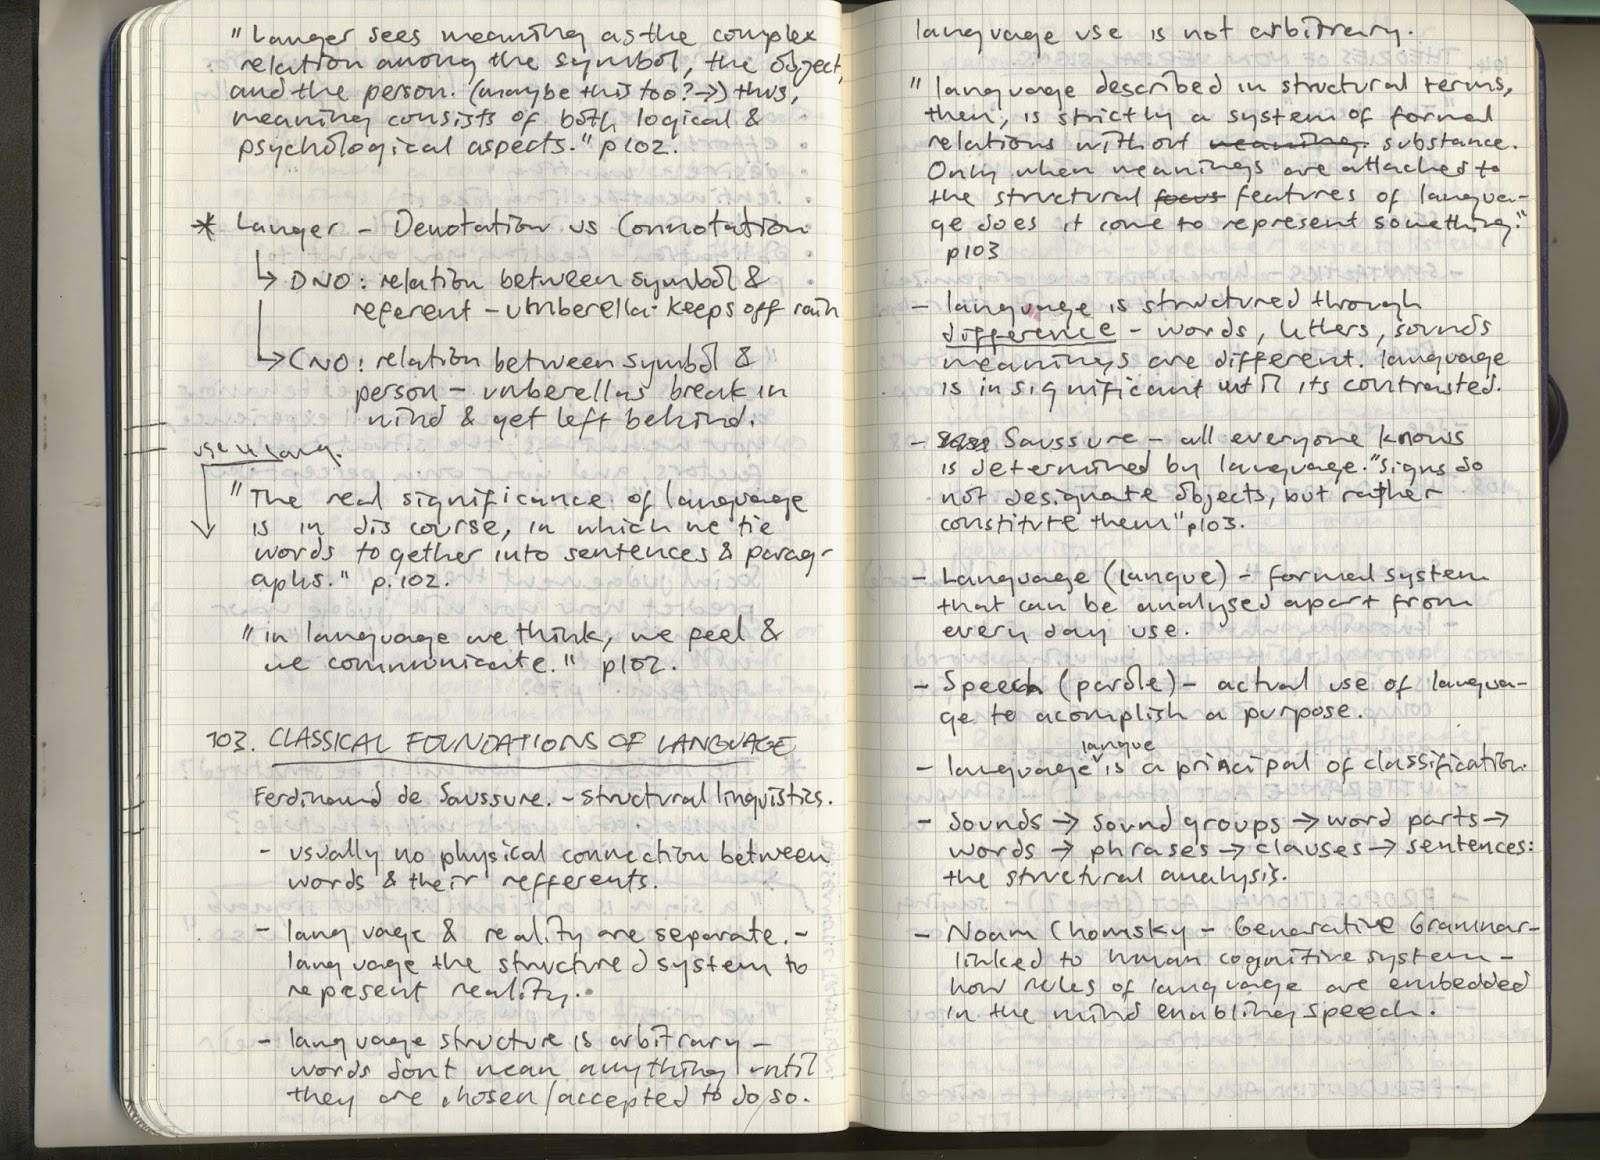 "Langer sees meaning as the complex
relation among the symbol, the object,
and the person. (maybe this too? →) thus,
meaning consists of both logical &
psychological aspects." p102.
* Langer - Denotation vs Connotation
↳ DNO: relation between symbol &
referent - umberella - keeps off rain
↳ CNO: relation between symbol &
person - umberellas break in
wind & get left behind.
lang.
"The real significance of language
is in discourse, in which we tie
words together into sentences & parag-
aphs." p.102.
"in language we think, we feel &
we communicate." p102.
103. CLASSICAL FOUNDATIONS OF LANGUAGE
Ferdinand de Saussure. - structural linguistics.
- usually no physical connection between
words & their refferents.
- language & reality are separate. -
language the structured system to
represent reality.
- language structure is arbitrary -
words dont mean anything until
they are chosen/accepted to do so.
language use is not arbitrary.
"language described in structural terms,
then, is strictly a system of formal
relations without meaning substance.
Only when meanings are attached to
the structural focus features of langua-
ge does it come to represent something."
p103
- language is structured through
difference - words, letters, sounds
meanings are different. language
is insignificant until its contrasted.
- Saussure - all everyone knows
is determined by language. "signs do
not designate objects, but rather
constitute them" p103.
- Language (langue) - formal system
that can be analysed apart from
every day use.
- Speech (parole) - actual use of langua-
ge to acomplish a purpose.
langue
- language is a principal of classification.
- Sounds → sound groups → word parts →
words → phrases → clauses → sentences:
the structural analysis.
- Noam Chomsky - Generative Grammar -
linked to human cognitive system -
how rules of language are embedded
in the mind enabling speech.